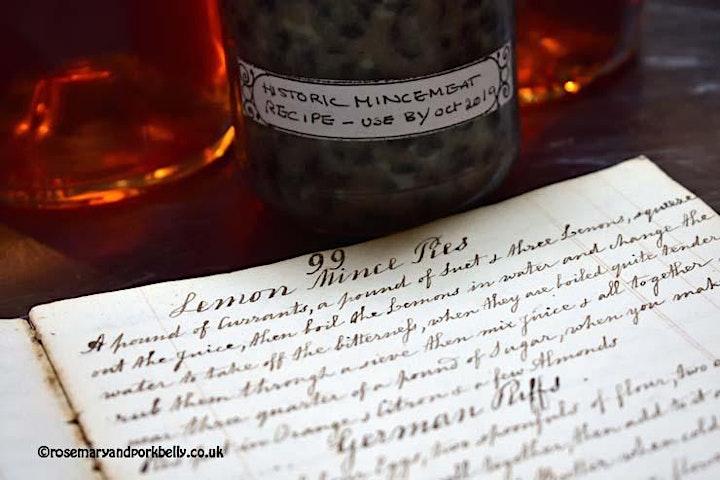 HISTORIC MINCEMEAT
RECIPE – USE BY OCT 2019
99
Lemon Mince Pies
A pound of Currants, a pound of Suet & three Lemons, squeeze
out the juice, then boil the Lemons in water and change the
water to take off the bitterness, when they are boiled quite tender
rub them through a sieve then mix juice & all together
three quarter of a pound of Sugar, when you make
put in Orange & Citron & a few Almonds
German Puffs.
Eggs, two spoonfuls of flour, two
well together, then add to it
when cold
©rosemaryandporkbelly.co.uk